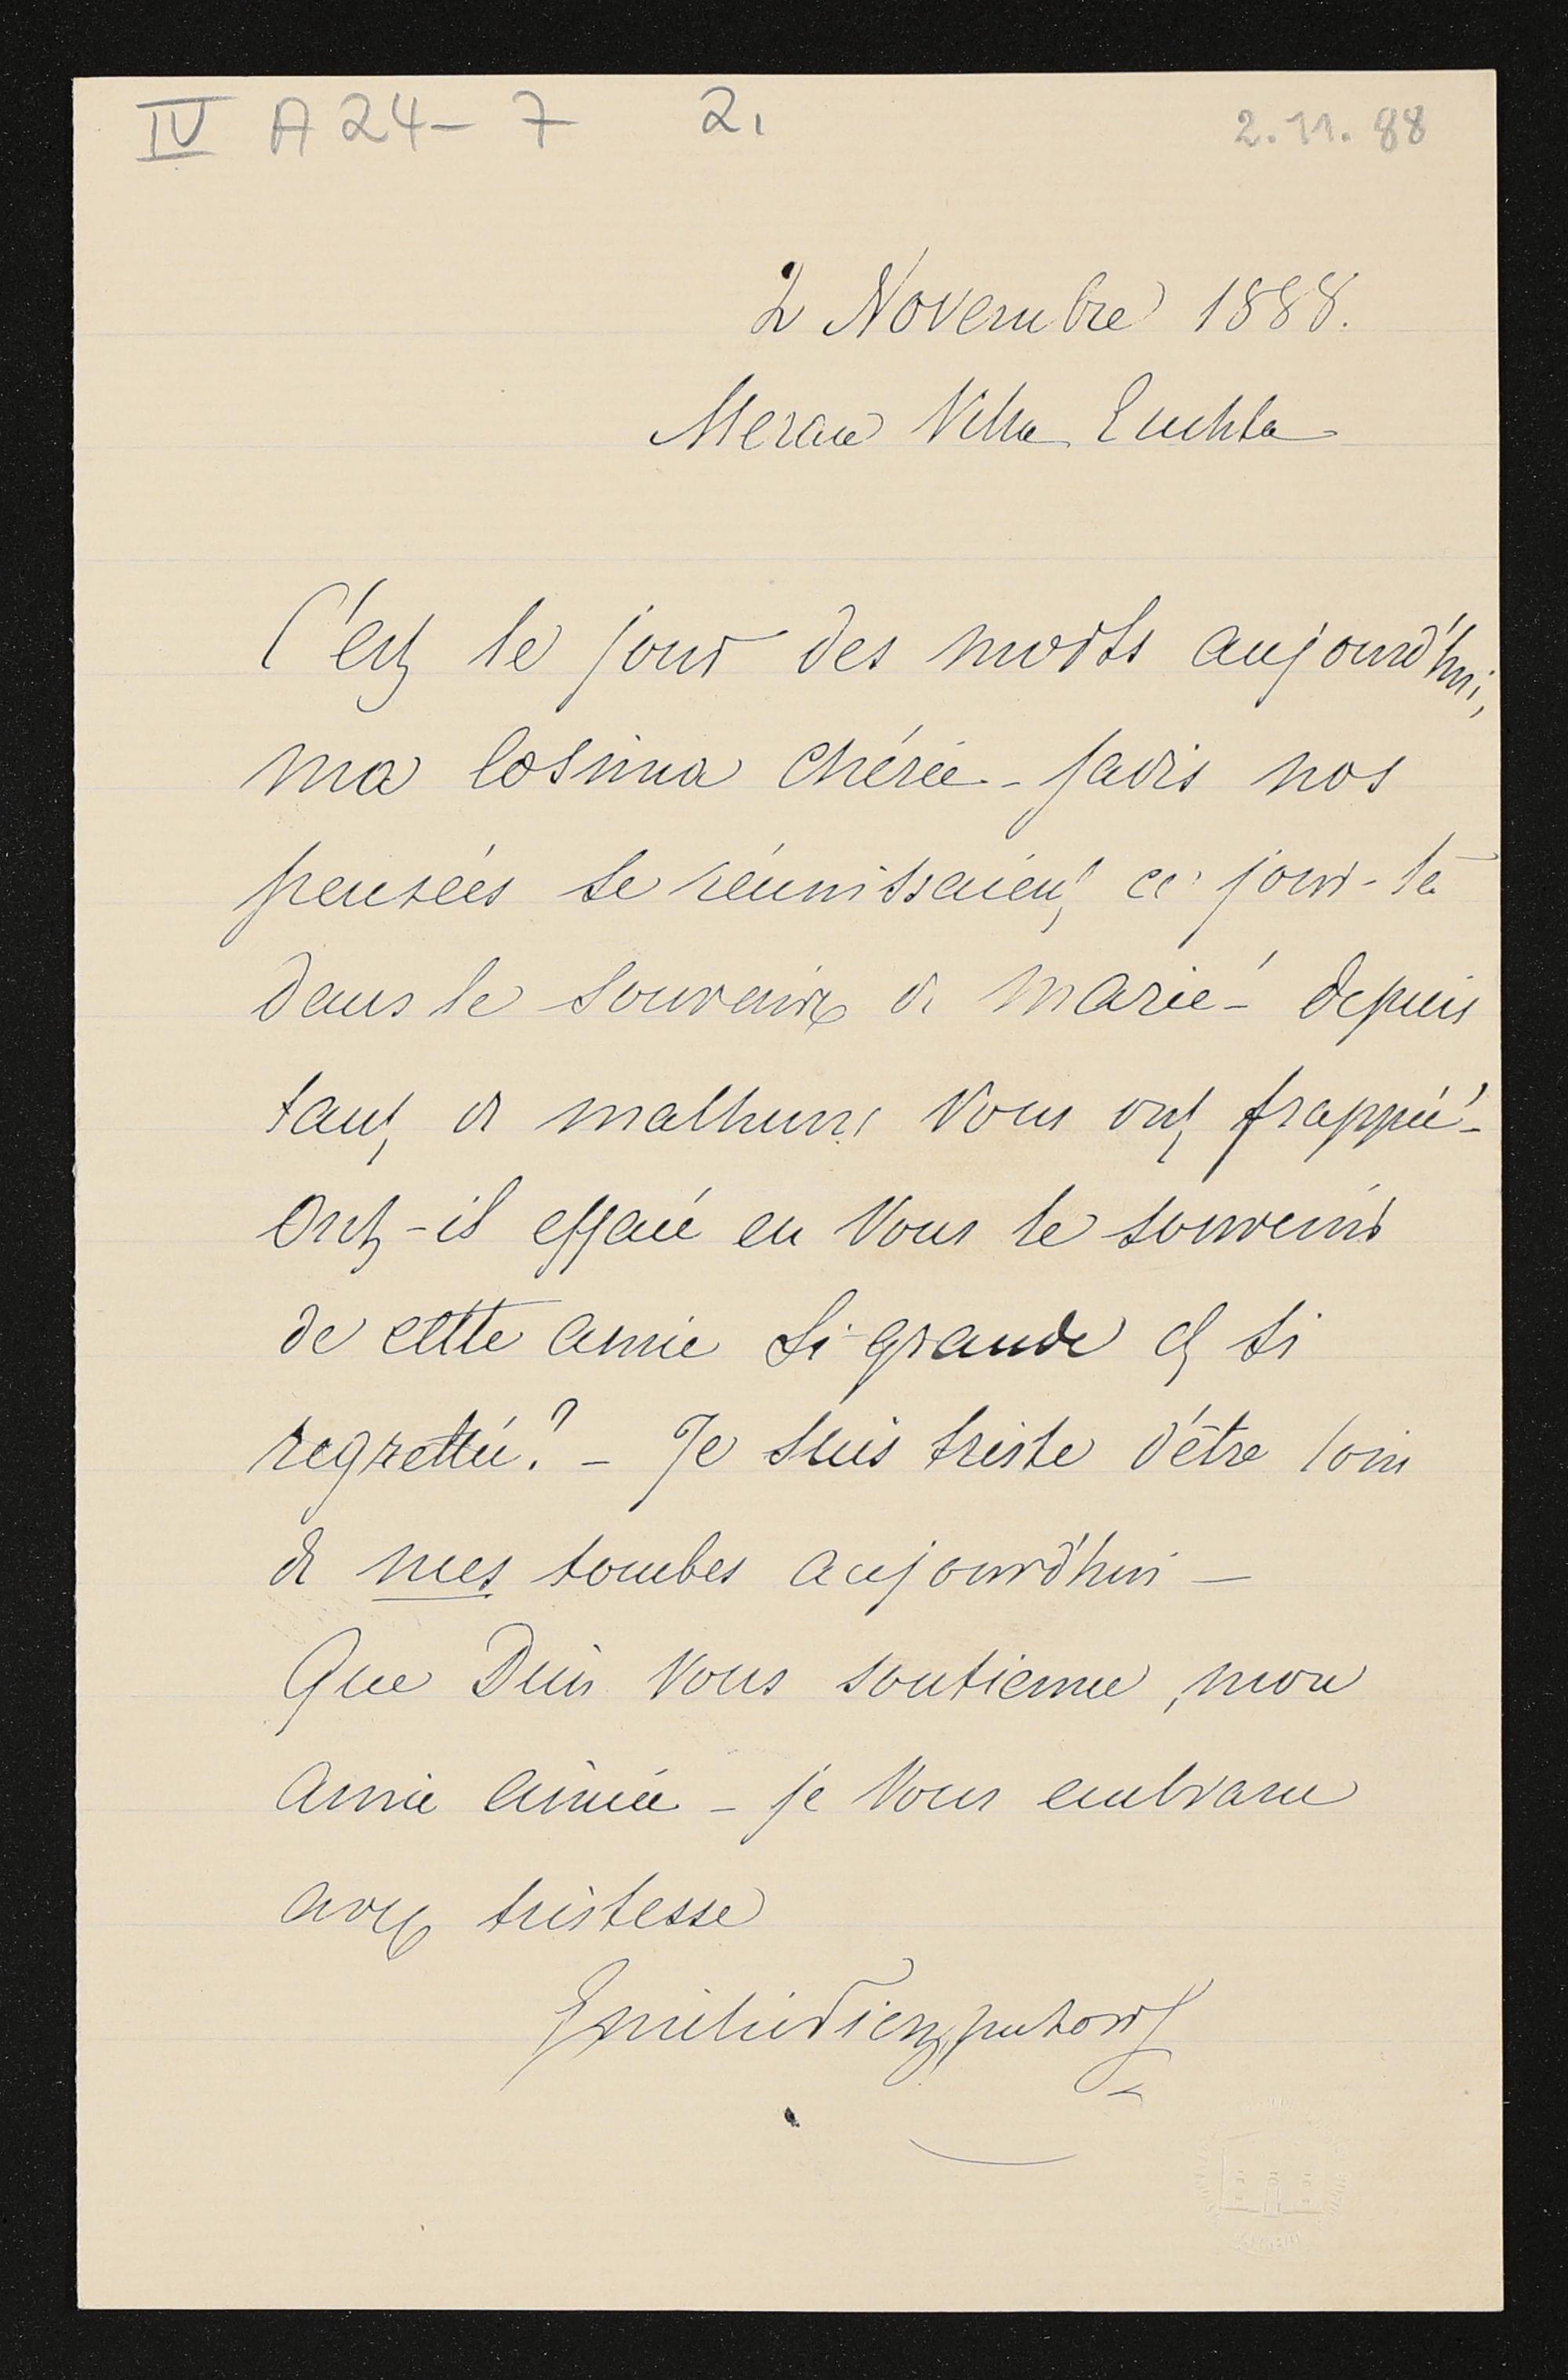 IV A 24-7 2,
2.11.88
2 Novembre 1888.
Meran Villa
C'est le jour des morts aujourd'hui,
ma Cosima chérie - jadis nos
pensées se réunissaient ce jour-là
dans le souvenir de Marie - depuis
tant de malheurs Vous ont frappée -
Ont-il effacé en Vous le souvenir
de cette amie si grande et si
regrettée? - Je suis triste d'être loin
de mes tombes aujourd'hui -
Que Dieu Vous soutienne, mon
amie aimée - je Vous embrasse
avec tristesse
Emilie